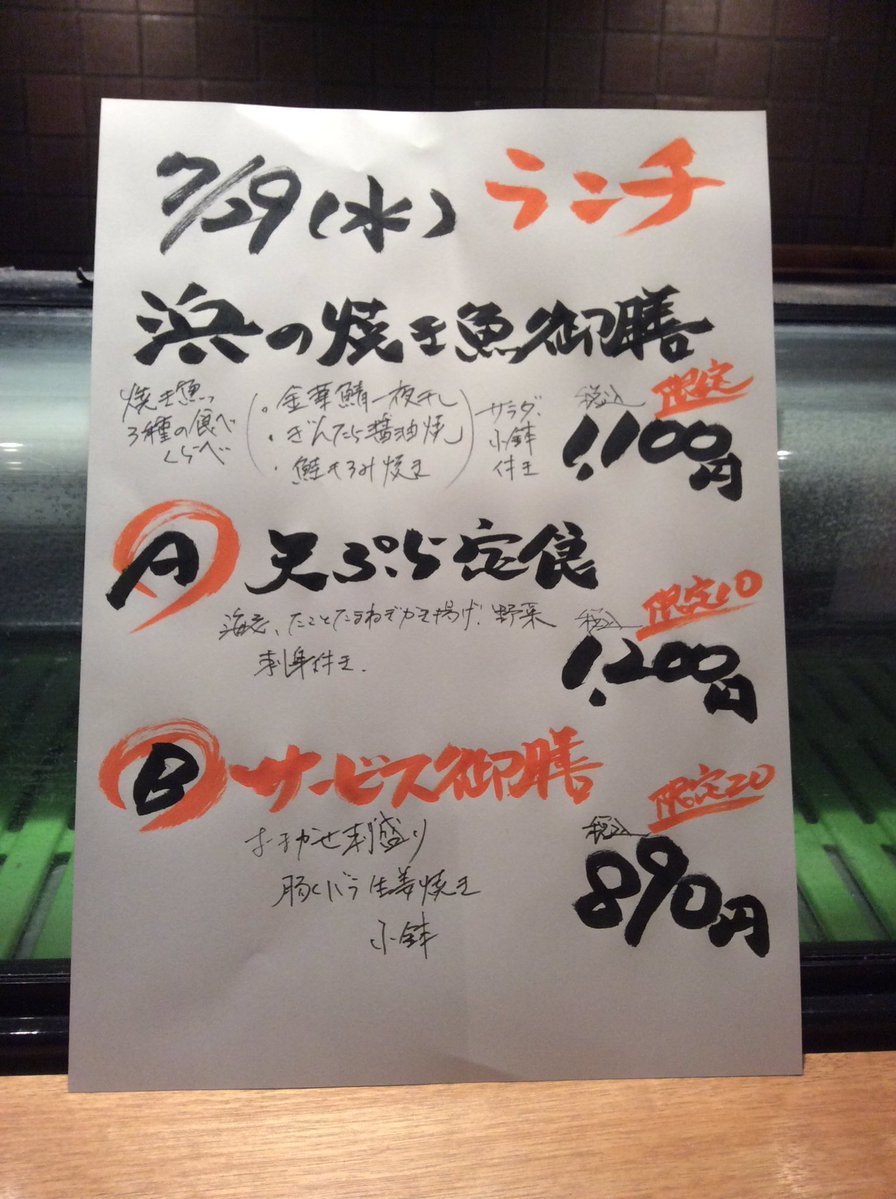 7/29(水) ランチ
浜の焼き魚御膳
焼き魚
3種の食べ
くらべ
・金華鯖一夜干し
・ぎんだら醤油焼
・鮭もろみ焼き
サラダ、
小鉢
付き
限定
税込
1,100円
A 天ぷら定食
海老、たことたまねぎかき揚げ、野菜
刺身付き.
限定10
税込
1,200円
B サービス御膳
おまかせ刺盛り
豚バラ生姜焼き
小鉢
限定20
税込
890円